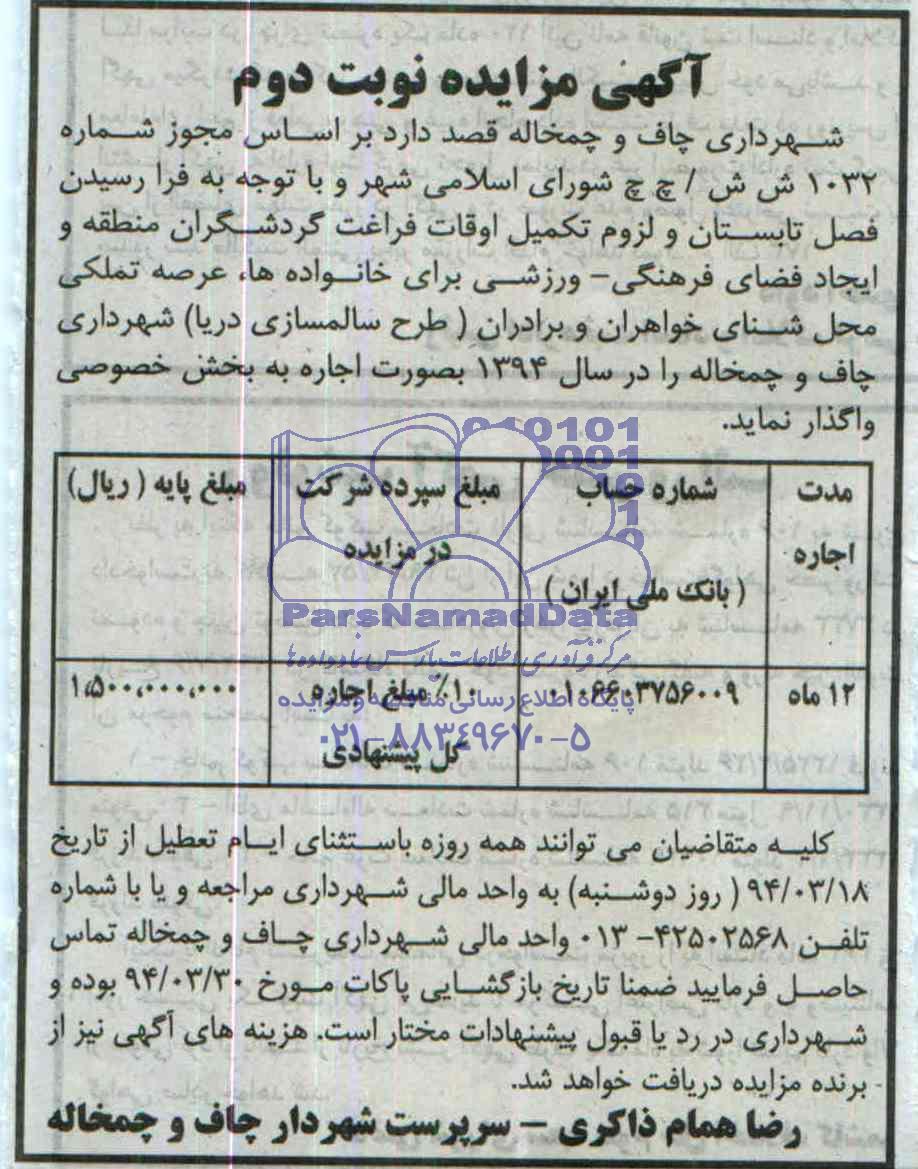 آگهی مزایده نوبت دوم
شهرداری چاف و چمخاله قصد دارد بر اساس مجوز شماره
۱۰۳۲ ش ش / چ چ شورای اسلامی شهر و با توجه به فرا رسیدن
فصل تابستان و لزوم تکمیل اوقات فراغت گردشگران منطقه و
ایجاد فضای فرهنگی- ورزشی برای خانواده ها، عرصه تملکی
محل شنای خواهران و برادران ( طرح سالمسازی دریا) شهرداری
چاف و چمخاله را در سال ۱۳۹۴ بصورت اجاره به بخش خصوصی
واگذار نماید.
مدت اجاره
شماره حساب
( بانک ملی ایران )
مبلغ سپرده شرکت
در مزایده
مبلغ پایه ( ریال)
۱۲ ماه
۰۱۰۶۶۰۳۷۵۶۰۰۹
۱۰٪ مبلغ اجاره
کل پیشنهادی
۱،۵۰۰،۰۰۰،۰۰۰
ParsNamadData
مرکز فرآوری اطلاعات پارس نماد داده ها
پایگاه اطلاع رسانی مناقصه و مزایده
۰۲۱-۸۸۳۴۹۶۷۰-۵
کلیه متقاضیان می توانند همه روزه باستثنای ایام تعطیل از تاریخ
۹۴/۰۳/۱۸ ( روز دوشنبه) به واحد مالی شهرداری مراجعه و یا با شماره
تلفن ۴۲۵۰۲۵۶۸- ۰۱۳ واحد مالی شهرداری چاف و چمخاله تماس
حاصل فرمایید ضمنا تاریخ بازگشایی پاکات مورخ ۹۴/۰۳/۳۰ بوده و
شهرداری در رد یا قبول پیشنهادات مختار است. هزینه های آگهی نیز از
برنده مزایده دریافت خواهد شد.
رضا همام ذاکری - سرپرست شهردار چاف و چمخاله